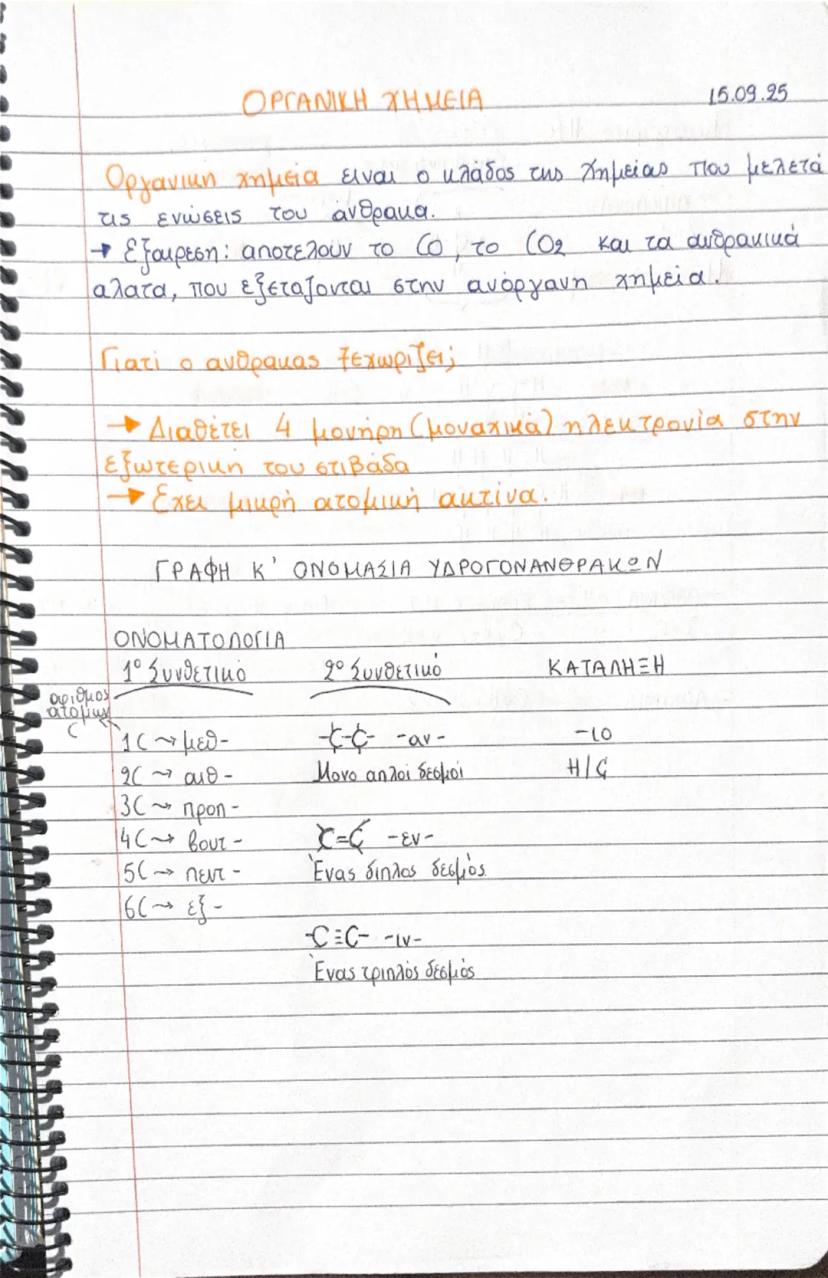 ΟΡΓΑΝΙΚΗ ΧΗΜΕΙΑ 15.09.25
Οργανική χημεία ειναι ο κλάδος της χημείας που μελετά
τις ενώσεις του άνθρακα.
→ Εξαιρεση: αποτελουν το CO, το CO2 και τα ανθρακικά
αλατα, που εξεταζονται στην ανόργανη χημεία.
Γιατί ο ανθρακας ξεχωριζει;
→ Διαθέτει 4 μονήρη (μοναχικά) ηλεκτρονία στην
εξωτερική του στιβάδα
→ Εχει μικρή ατομική ακτίνα.
ΓΡΑΦΗ Κ' ΟΝΟΜΑΣΙΑ ΥΔΡΟΓΟΝΑΝΘΡΑΚΩΝ
ΟΝΟΜΑΤΟΛΟΓΙΑ
1º Συνθετικό 2º Συνθετικό ΚΑΤΑΛΗΞΗ
αριθμος
ατομων
C
1C → μεθ- -C-C- -αν- -ιο
2C → αιθ- Μονο απλοί δεσμοί H/C
3C → προπ-
4C → βουτ- C=C -εν-
5C → πεντ- Ένας διπλος δεσμός
6C → εξ-
-C≡C- -ιν-
Ένας τριπλός δεσμός